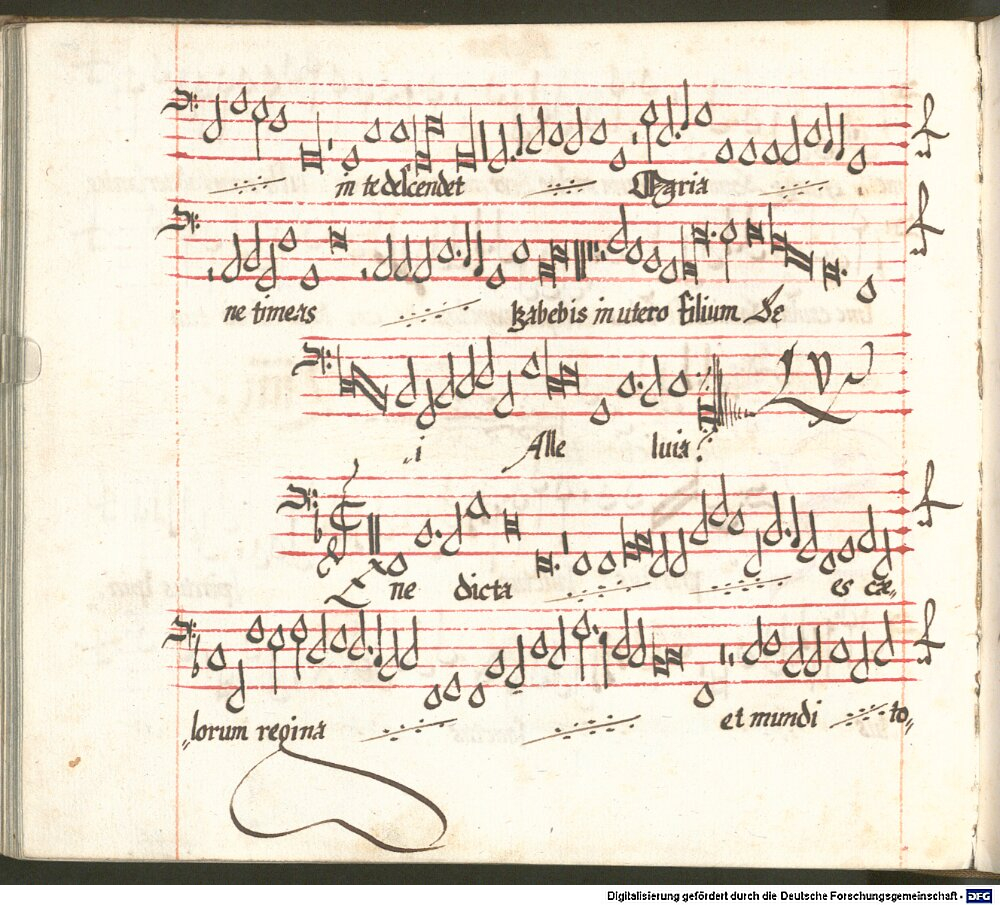 in te descendet Maria
ne timeas habebis in utero filium De
i Alle luia
LV
Be ne dicta es cæ„
„lorum regina et mundi to„
Digitalisierung gefördert durch die Deutsche Forschungsgemeinschaft - DFG